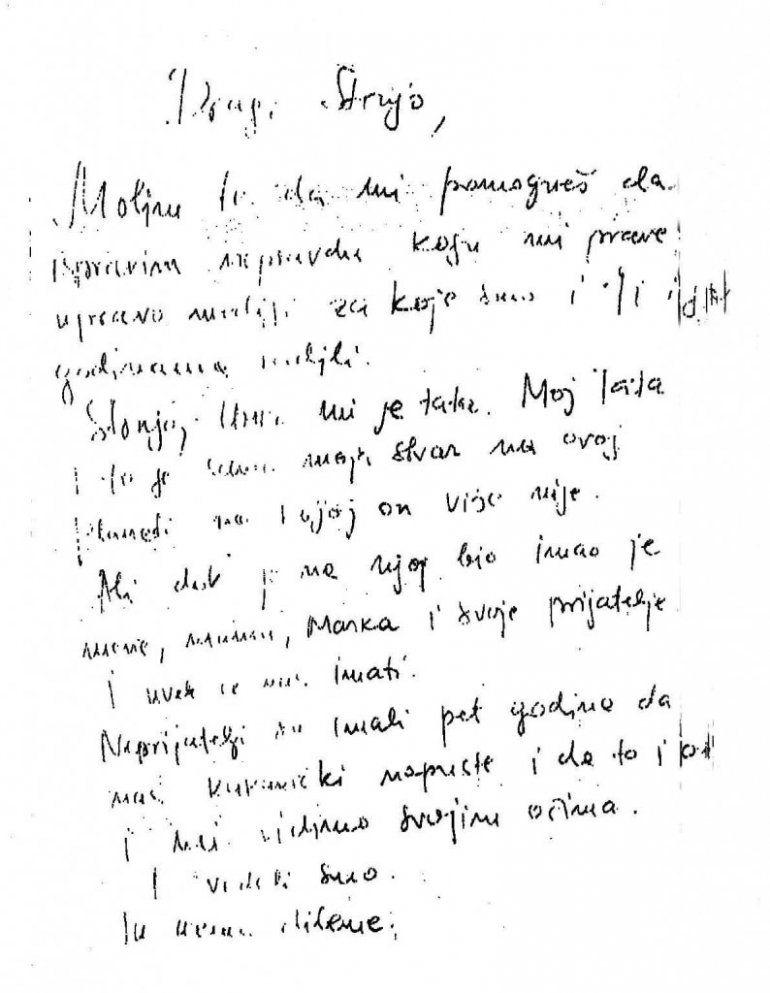 Dragi Strujo,
Molim te da mi pomogneš da
ispravim nepravdu koju mi prave
upravo mediji za koje smo i Ti i
godinama radili.
mi je tata. Moj tata
i to je moja stvar na ovoj
planeti na kojoj on više nije.
Ali dok je na njoj bio imao je
mene, mamu, Marka i svoje prijatelje
i uvek će nas imati.
Neprijatelji su imali pet godina da
nas kukavički napuste i da to i
i mi vidimo svojim očima.
I videli smo.
Tu nema dileme.